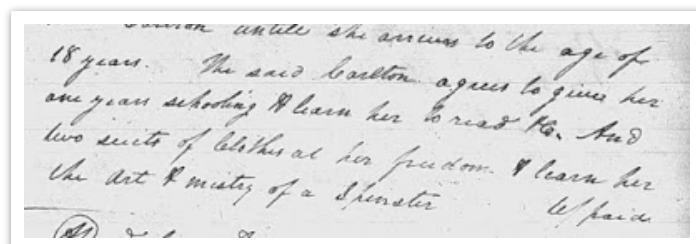 untill she arrives to the age of
18 years. The said Carlton agrees to give her
one years schooling & learn her to read &c. And
two suits of Clothes at her freedom. & learn her
the art & mistry of a Spinster
paid